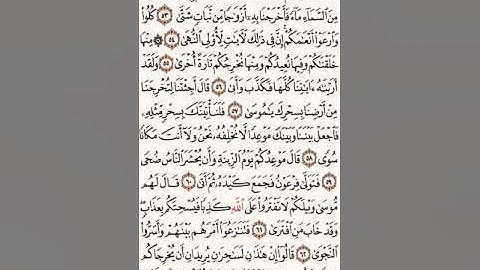 مِنَ ٱلسَّمَآءِ مَآءً فَأَخْرَجْنَا بِهِۦٓ أَزْوَٰجًا مِّن نَّبَاتٍ شَتَّىٰ ٥٣ كُلُوا۟
وَٱرْعَوْا۟ أَنْعَٰمَكُمْ إِنَّ فِى ذَٰلِكَ لَءَايَٰتٍ لِّأُو۟لِى ٱلنُّهَىٰ ٥٤ ۞ مِنْهَا
خَلَقْنَٰكُمْ وَفِيهَا نُعِيدُكُمْ وَمِنْهَا نُخْرِجُكُمْ تَارَةً أُخْرَىٰ ٥٥ وَلَقَدْ
أَرَيْنَٰهُ ءَايَٰتِنَا كُلَّهَا فَكَذَّبَ وَأَبَىٰ ٥٦ قَالَ أَجِئْتَنَا لِتُخْرِجَنَا
مِنْ أَرْضِنَا بِسِحْرِكَ يَٰمُوسَىٰ ٥٧ فَلَنَأْتِيَنَّكَ بِسِحْرٍ مِّثْلِهِۦ
فَٱجْعَلْ بَيْنَنَا وَبَيْنَكَ مَوْعِدًا لَّا نُخْلِفُهُۥ نَحْنُ وَلَآ أَنتَ مَكَانًا
سُوًى ٥٨ قَالَ مَوْعِدُكُمْ يَوْمُ ٱلزِّينَةِ وَأَن يُحْشَرَ ٱلنَّاسُ ضُحًى
٥٩ فَتَوَلَّىٰ فِرْعَوْنُ فَجَمَعَ كَيْدَهُۥ ثُمَّ أَتَىٰ ٦٠ قَالَ لَهُم
مُّوسَىٰ وَيْلَكُمْ لَا تَفْتَرُوا۟ عَلَى ٱللَّهِ كَذِبًا فَيُسْحِتَكُم بِعَذَابٍ
وَقَدْ خَابَ مَنِ ٱفْتَرَىٰ ٦١ فَتَنَٰزَعُوٓا۟ أَمْرَهُم بَيْنَهُمْ وَأَسَرُّوا۟
ٱلنَّجْوَىٰ ٦٢ قَالُوٓا۟ إِنْ هَٰذَٰنِ لَسَٰحِرَٰنِ يُرِيدَانِ أَن يُخْرِجَاكُم